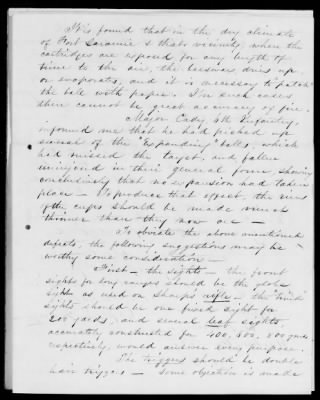 It is found that in the dry climate
of Fort Laramie & that vicinity, where the
cartridges are exposed for any length of
time to the air, the beeswax dries up,
or evaporates, and it is necessary to patch
the ball with paper. In such cases
there cannot be great accuracy of fire.
Major Cady 6th Infantry,
informed me that he had picked up
several of the "Expanding" balls, which
had missed the target, and fallen
uninjured in their general form, showing
conclusively that no expansion had taken
place. To produce that effect, the rim
of the cups should be made much
thinner than they now are —
To obviate the above mentioned
defects, the following suggestions may be
worthy some consideration —
First — the sights — the front
sights for long ranges should be the globe
sights as used on Sharps rifle — the hind
sights should be one fixed sight for
200 yards, and several leaf sights
accurately constructed for 400, 600, 800 yards
respectively, would answer every purpose.
The triggers should be double
hair triggers — Some objection is made